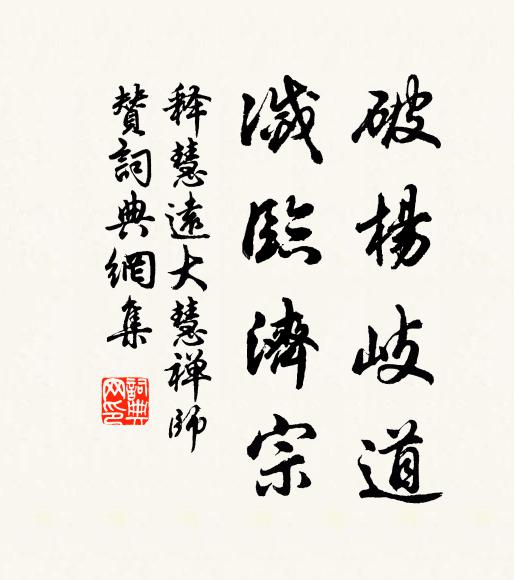 破楊岐道
滅臨濟宗
释慧遠大慧禅師
贊詞典網集
詞典
网印